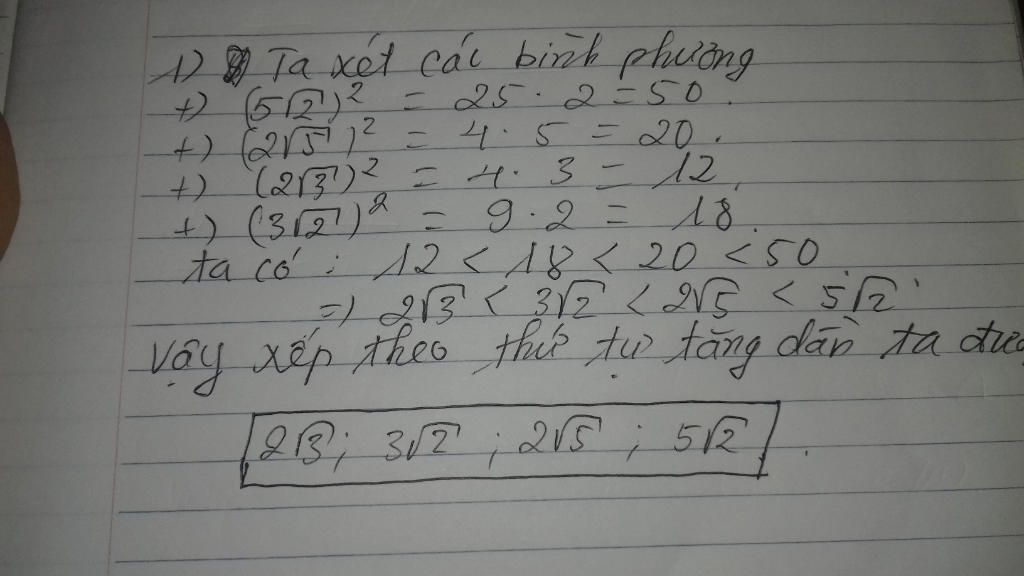 1) Ta xét các bình phương
+) (5√2)² = 25 · 2 = 50.
+) (2√5)² = 4 · 5 = 20.
+) (2√3)² = 4 · 3 = 12.
+) (3√2)² = 9 · 2 = 18.
ta có : 12 < 18 < 20 < 50
=> 2√3 < 3√2 < 2√5 < 5√2.
Vậy xếp theo thứ tự tăng dần ta
2√3 ; 3√2 ; 2√5 ; 5√2 .